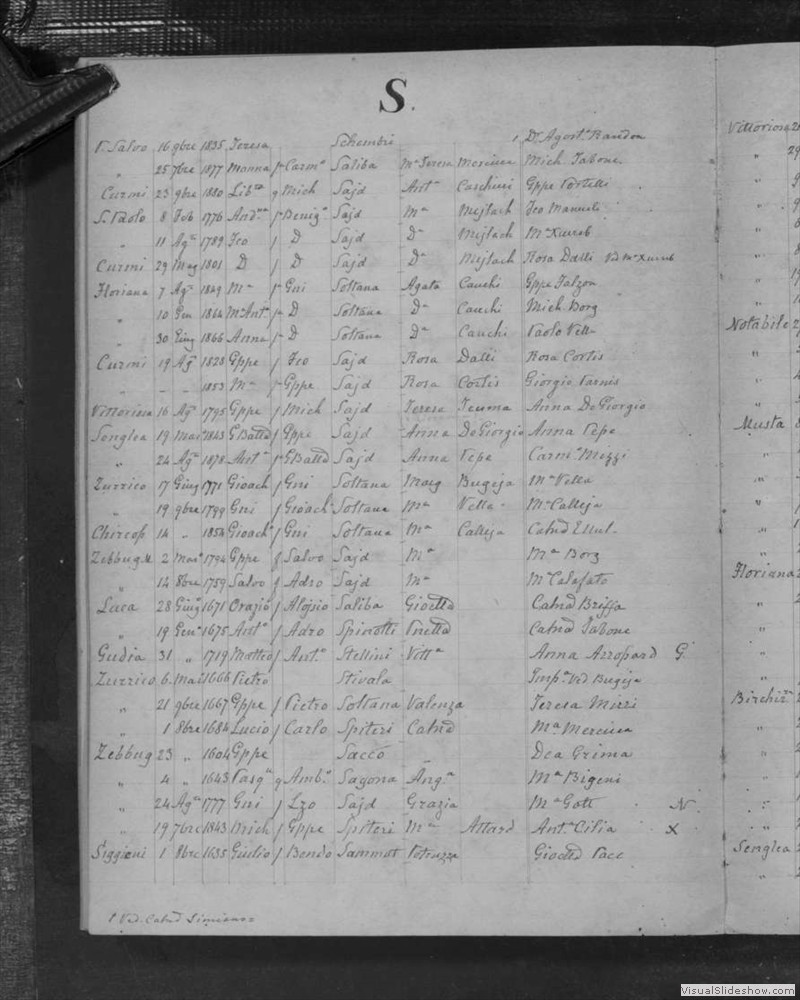 S.
P. Salvo 16 9bre 1835 Teresa Schembri 1 Dr. Agost.a Randon
„ 25 7bre 1877 Manna f Carm.o Saliba M.a Teresa Mercieca Mich Tabone
Curmi 23 9bre 1880 Lib.ta q Mich Sajd Ant.a Caschini Gppe Portelli
S. Paolo 8 Feb 1776 f Benig.o Sajd M.a Mejlach Fco Manueli
„ 11 Ag.o 1789 Fco f D Sajd D.a Mejlach M.a Xuereb
Curmi 29 Mag 1801 D f D Sajd D.a Mejlach Rosa Dalli Vd M.a Xuereb
Floriana 7 Ag.o 1849 M.a f Gni Soltana Agata Cauchi Gppe Falzon
„ 10 Gen 1864 M.Ant.a f D Soltana D.a Cauchi Mich Borg
„ 30 Giug 1866 Anna f D Soltana D.a Cauchi Paolo Vella
Curmi 19 Ag.o 1828 Gppe f Fco Sajd Rosa Dalli Rosa Cortis
„ – – 1853 M.a f Gppe Sajd Rosa Cortis Giorgio Farnis
Vittoriosa 16 Ag.o 1795 Gppe f Mich Sajd Teresa Teuma Anna DeGiorgio
Senglea 19 Mar 1843 GBatta f Gppe Sajd Anna DeGiorgio Anna Pepe
„ 24 Ag.o 1878 Ant.o f GBatta Sajd Anna Pepe Carm.a Mizzi
Zurrico 17 Giug 1771 Gioach f Gni Soltana Marg Bugeja M.a Vella
„ 19 9bre 1799 Gni f Gioach.o Soltana M.a Vella M.a Calleja
Chircop 14 „ 1854 Gioach.o f Gni Soltana M.a Calleja Catnd Ellul
Zebbug M 2 1794 Gppe f Salvo Sajd M.a M.a Borg
„ 14 8bre 1759 Salvo f Adro Sajd M.a M.a Calafato
Luca 28 Giug 1671 Orazio f Alojsio Saliba Gioetta Catnd Briffa
„ 19 Gen.o 1675 Ant.o f Adro Spinotti Pnetta Catnd Tabone
Gudia 31 „ 1719 Matteo f Ant.o Stellini Vitt.a Anna Azzopard G.
Zurrico 6 Mai 1666 Pietro Stivala Imp.a Vd Bugeja
„ 21 9bre 1667 Gppe f Pietro Soltana Valenza Teresa Mizzi
„ 1 8bre 1684 Lucio f Carlo Spiteri Catnd M.a Mercieca
Zebbug 23 „ 1604 Gppe Sacco Dea Grima
„ 4 „ 1643 Pasq.e q Amb.o Sagona Ang.a M.a Bigeni
„ 24 Ag.o 1777 Gni f Lzo Sajd Grazia M.a Gott N.
„ 19 7bre 1843 Mich f Gppe Spiteri M.a Attard Ant.a Cilia X
Siggieni 1 8bre 1635 Giulio f Bendo Sammut Petruzza Gioetta Pace
1 Ved. Catnd
Vittoriosa
Notabile
Musta
Floriana
Birchir.a
Senglea
VisualSlideshow.com